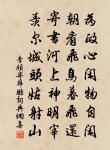 為政心閑物自閑
朝看飛鳥暮飛還
寄書河上神明宰
羨爾城頭姑射山
李頎寄韓鵬